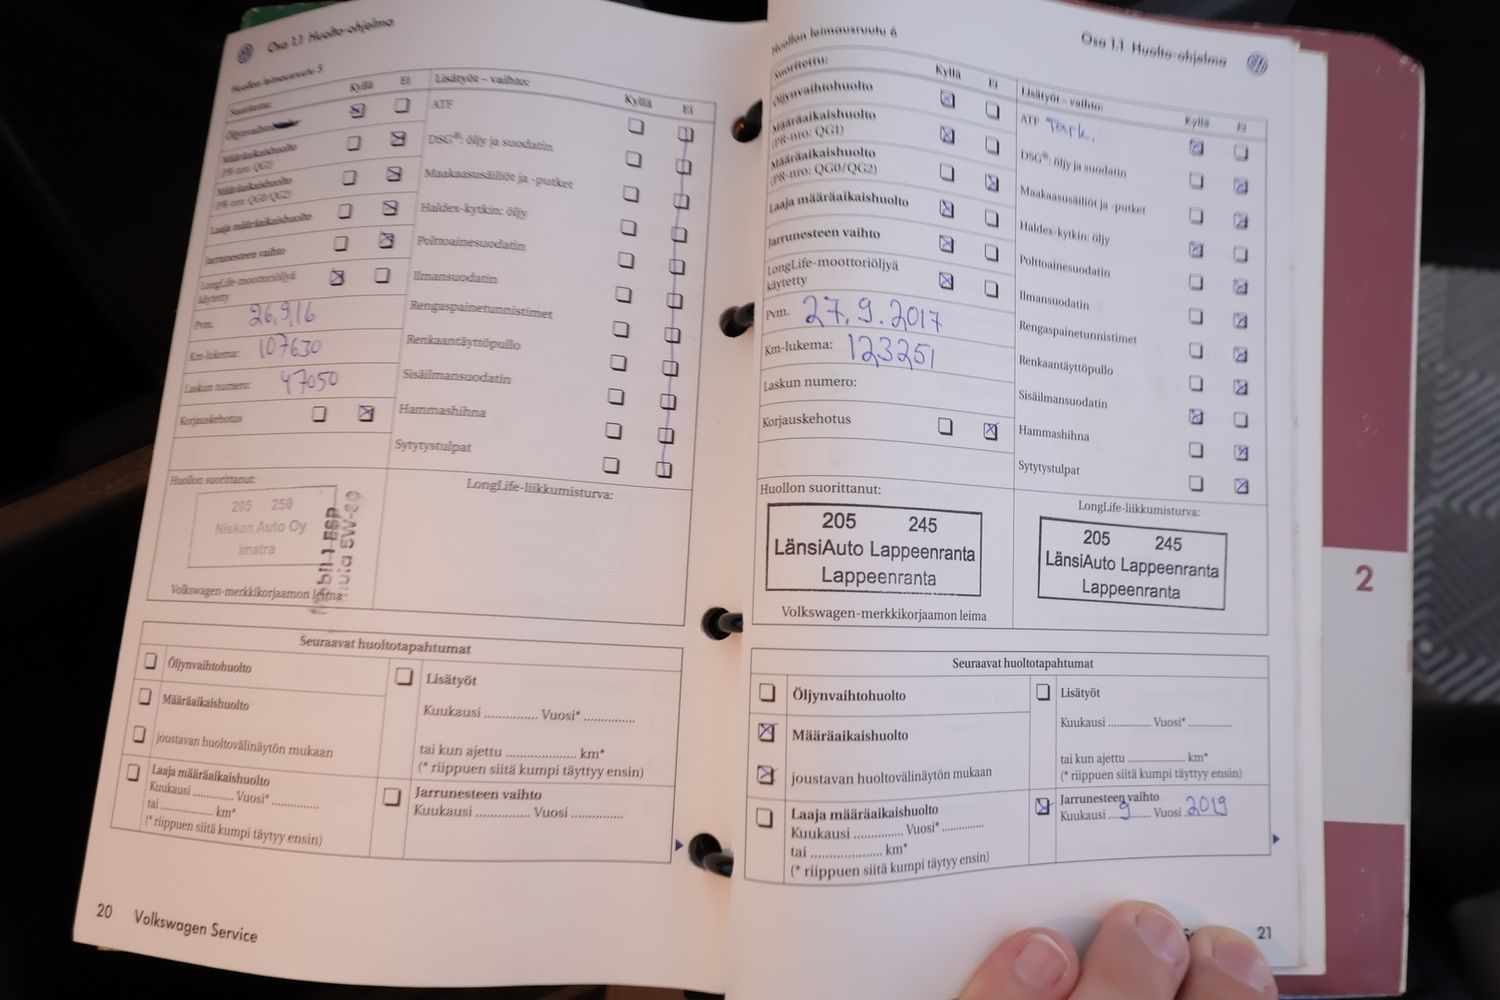 Osa 1.1 Huolto-ohjelma
Huollon leimausruutu 5
Suoritettu: Kyllä Ei
Öljynvaihto
Määräaikaishuolto
(PR-nro: QG2)
Määräaikaishuolto
(PR-nro: QG0/QG2)
Laaja määräaikaishuolto
Jarrunesteen vaihto
LongLife-moottoriöljyä
käytetty
Pvm. 26.9.16
Km-lukema: 107630
Laskun numero: 47050
Korjauskehotus
Lisätyöt – vaihto: Kyllä Ei
ATF
DSG®: öljy ja suodatin
Maakaasusäiliöt ja -putket
Haldex-kytkin: öljy
Polttoainesuodatin
Ilmansuodatin
Rengaspainetunnistimet
Renkaantäyttöpullo
Sisäilmansuodatin
Hammashihna
Sytytystulpat
Huollon suorittanut:
205 250
Niskan Auto Oy
Imatra
Volkswagen-merkkikorjaamon leima
LongLife-liikkumisturva:
Seuraavat huoltotapahtumat
Öljynvaihtohuolto
Määräaikaishuolto
joustavan huoltovälinäytön mukaan
Laaja määräaikaishuolto
Kuukausi .............. Vuosi* ..............
tai .................... km*
(* riippuen siitä kumpi täytyy ensin)
Lisätyöt
Kuukausi .............. Vuosi* ..............
tai kun ajettu .................... km*
(* riippuen siitä kumpi täyttyy ensin)
Jarrunesteen vaihto
Kuukausi .............. Vuosi ..............
20 Volkswagen Service
Osa 1.1 Huolto-ohjelma
Huollon leimausruutu 6
Suoritettu: Kyllä Ei
Öljynvaihtohuolto
Määräaikaishuolto
(PR-nro: QG1)
Määräaikaishuolto
(PR-nro: QG0/QG2)
Laaja määräaikaishuolto
Jarrunesteen vaihto
LongLife-moottoriöljyä
käytetty
Pvm. 27.9.2017
Km-lukema: 123251
Laskun numero:
Korjauskehotus
Lisätyöt – vaihto: Kyllä Ei
ATF Tark.
DSG®: öljy ja suodatin
Maakaasusäiliöt ja -putket
Haldex-kytkin: öljy
Polttoainesuodatin
Ilmansuodatin
Rengaspainetunnistimet
Renkaantäyttöpullo
Sisäilmansuodatin
Hammashihna
Sytytystulpat
Huollon suorittanut:
205 245
LänsiAuto Lappeenranta
Lappeenranta
Volkswagen-merkkikorjaamon leima
LongLife-liikkumisturva:
205 245
LänsiAuto Lappeenranta
Lappeenranta
Seuraavat huoltotapahtumat
Öljynvaihtohuolto
Määräaikaishuolto
joustavan huoltovälinäytön mukaan
Laaja määräaikaishuolto
Kuukausi .............. Vuosi* ..............
tai .................... km*
(* riippuen siitä kumpi täytyy ensin)
Lisätyöt
Kuukausi .............. Vuosi* ..............
tai kun ajettu .................... km*
(* riippuen siitä kumpi täyttyy ensin)
Jarrunesteen vaihto
Kuukausi 9 Vuosi 2019
21
2